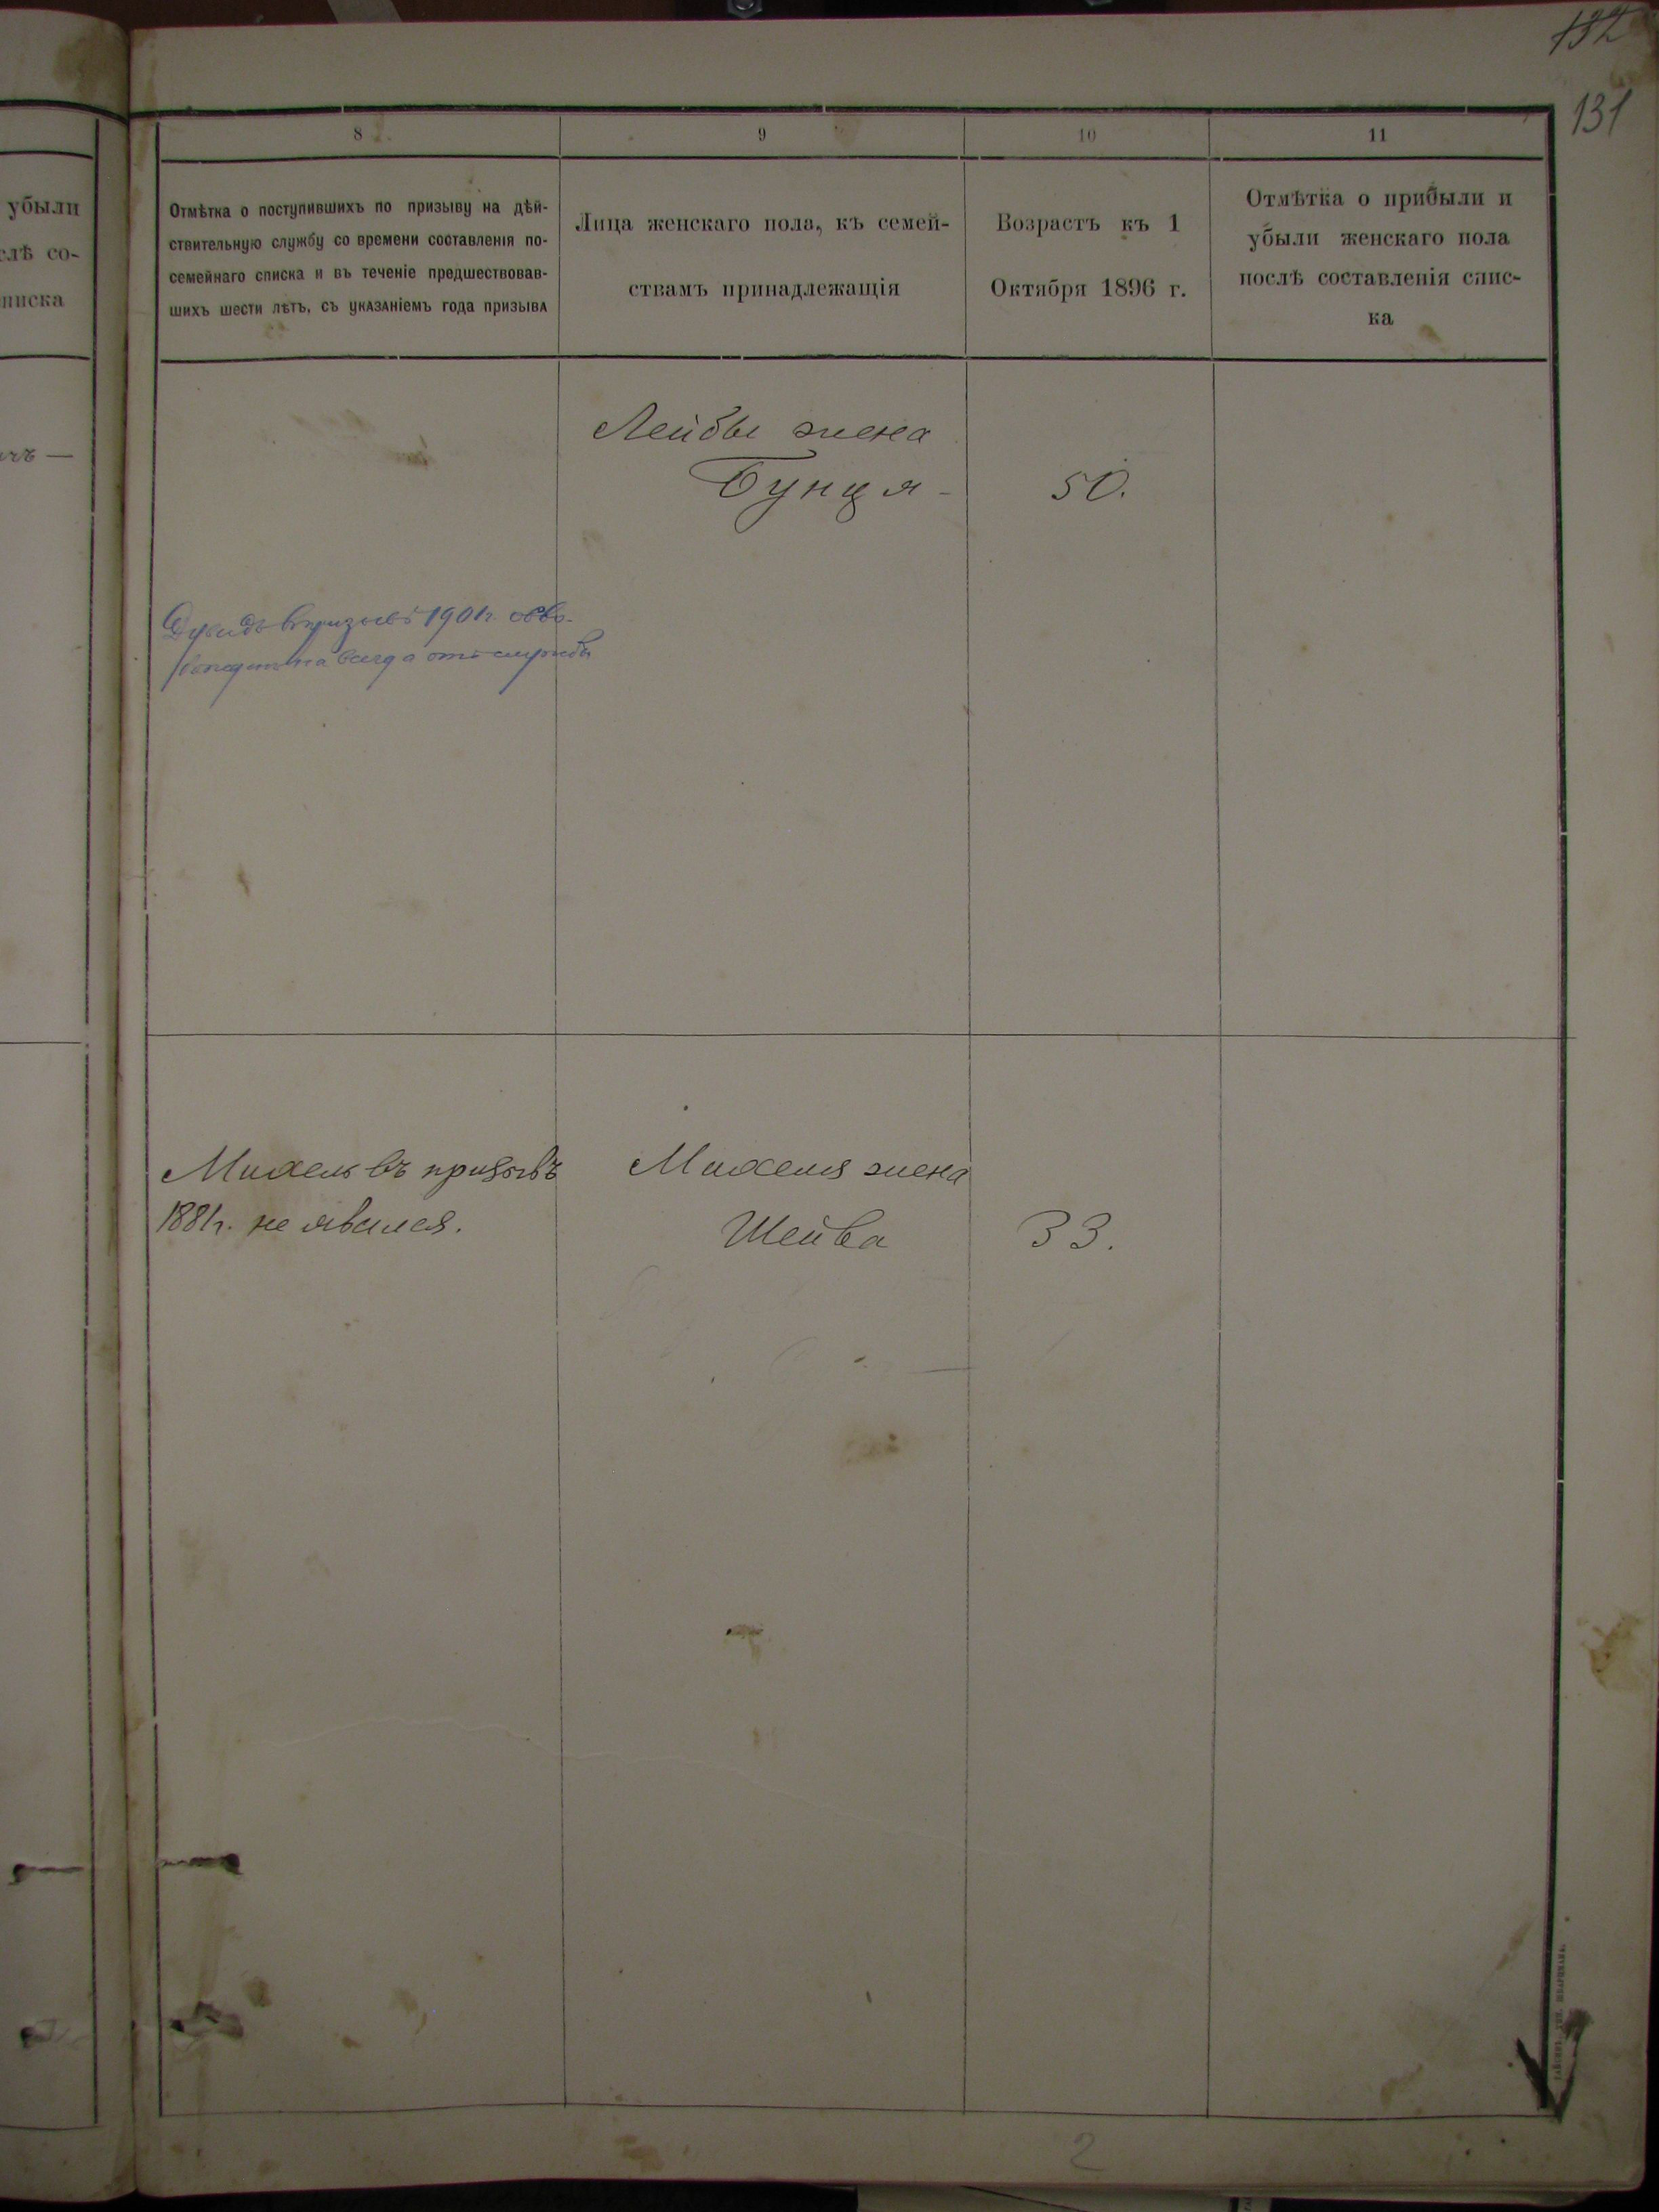 132
131
убыли
слѣ со-
писка
8
9
10
11
Отмѣтка о поступившихъ по призыву на дѣй-
ствительную службу со времени составленія по-
семейнаго списка и въ теченіе предшествовав-
шихъ шести лѣтъ, съ указаніемъ года призыва
Лица женскаго пола, къ семей-
ствамъ принадлежащія
Возрастъ къ 1
Октября 1896 г.
Отмѣтка о прибыли и
убыли женскаго пола
послѣ составленія спис-
ка
Лейбы жена
Бунця - 50.
Дувидъ въ призывѣ 1901 г. осво-
божденъ на всегда отъ службы
Михель въ призывъ
1881 г. не явился.
Михеля жена
Шейва 33.
2